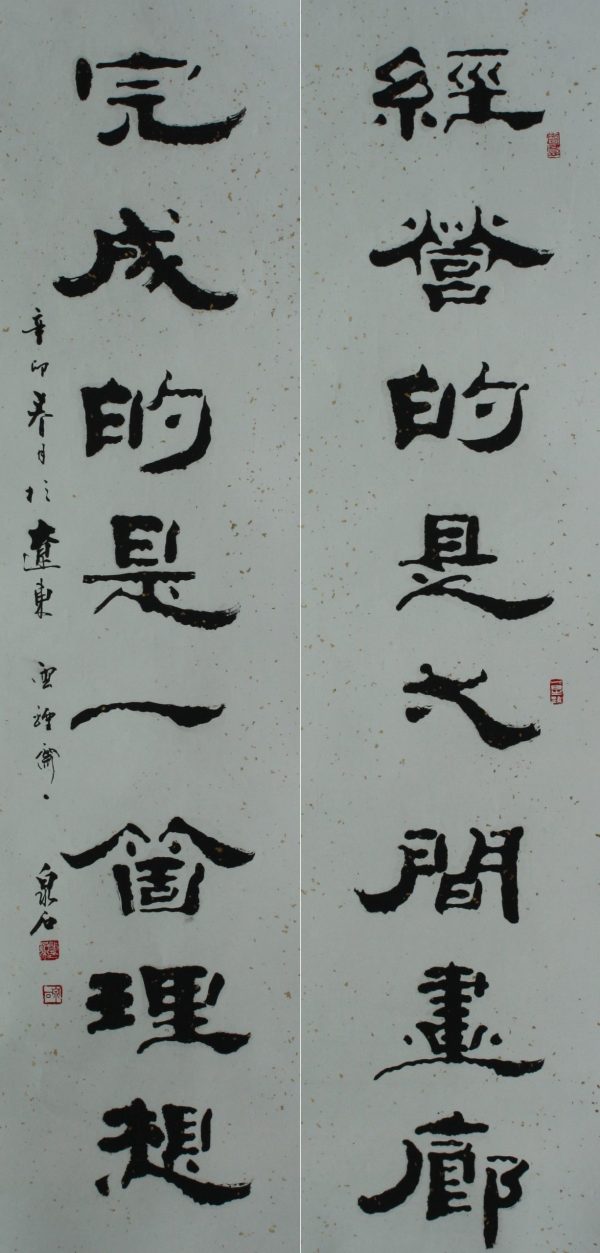 經營的是間畫廊
完成的是一箇理想
辛卯春月於遼東雲煙齋、泉石